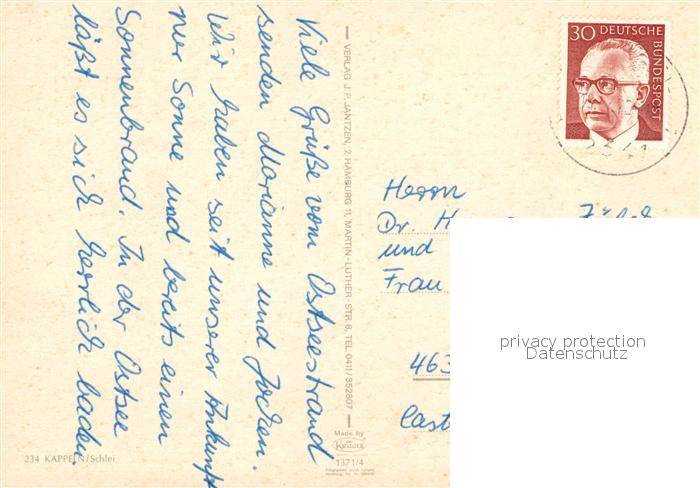 Viele Grüße vom Ostseestrand
senden Marianne und Jochen.
Wir haben seit unserer Ankunft
nur Sonne und bereits einen
Sonnenbrand. In der Ostsee
läßt es sich herrlich baden.
VERLAG J. P. JANTZEN, 2 HAMBURG 11, MARTIN-LUTHER-STR. 8, TEL. 0411/352807
30 DEUTSCHE BUNDESPOST
Herrn
Dr. H
und
Frau
463
Cast
privacy protection
Datenschutz
234 KAPPELN/Schlei
Made by
Krüger
1371/4